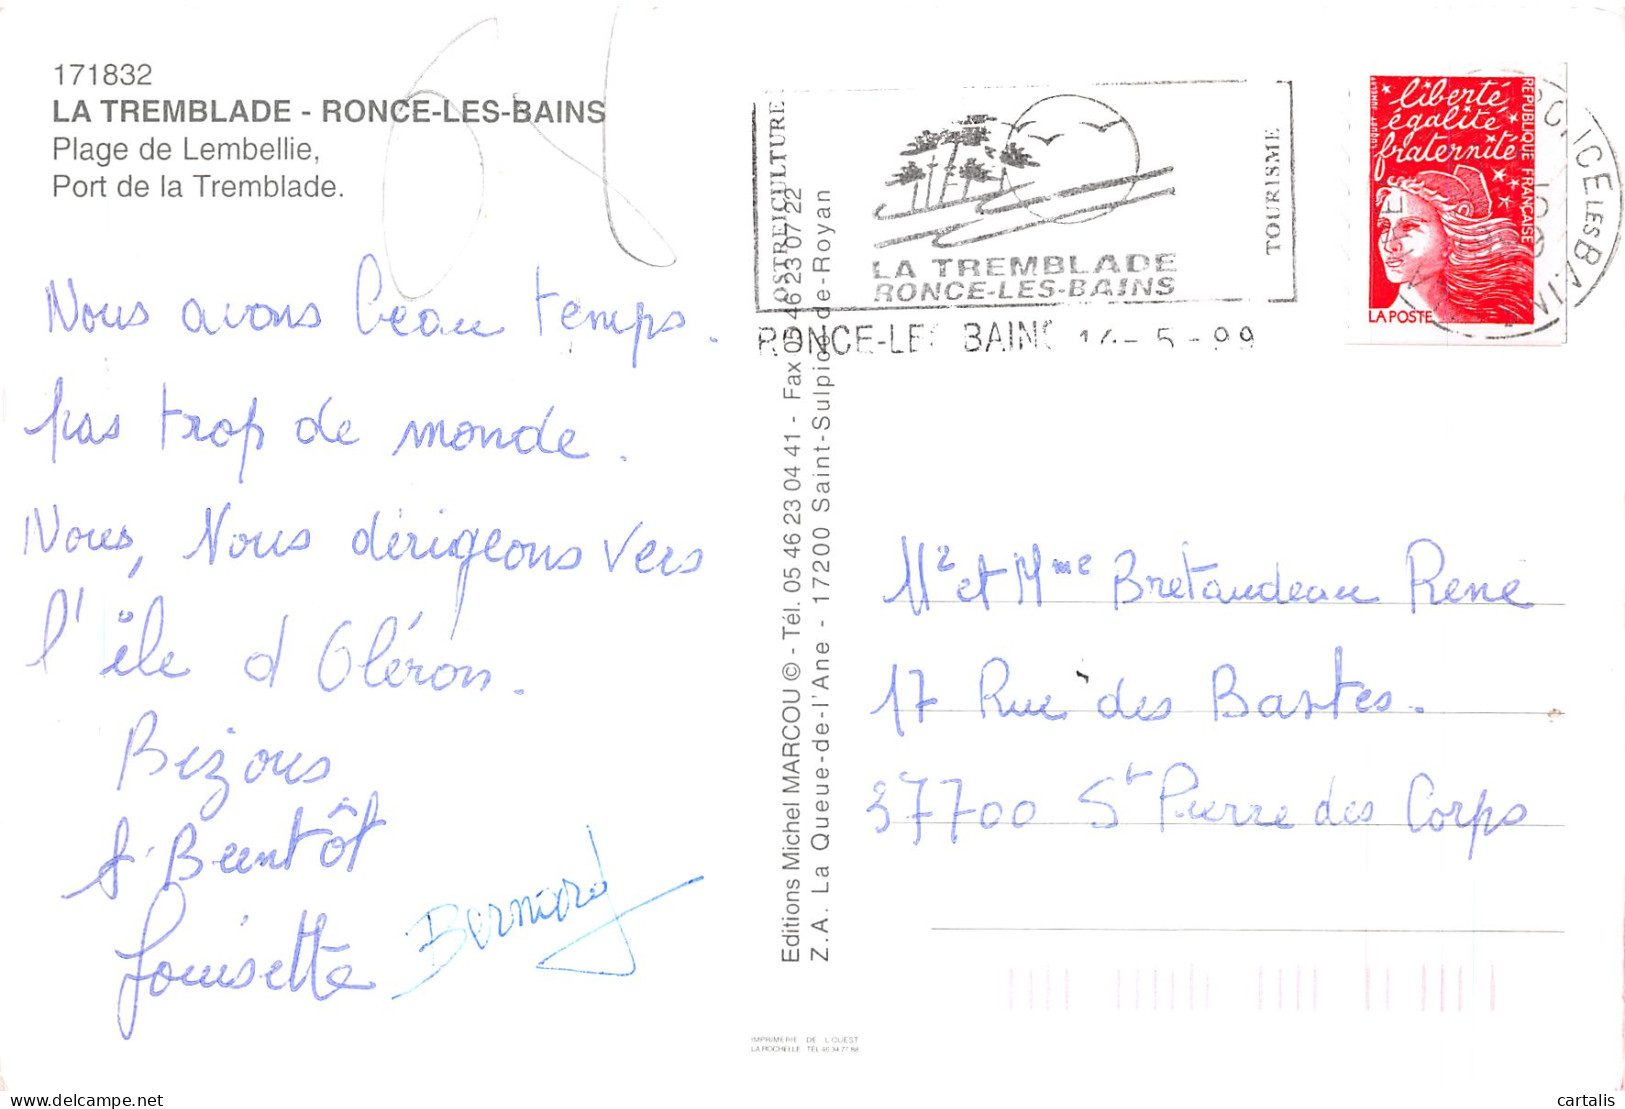 171832
LA TREMBLADE - RONCE-LES-BAINS
Plage de Lembellie,
Port de la Tremblade.
Nous avons beau temps.
pas trop de monde.
Nous, Nous dérigeons vers
l'île d Oléron.
Bizous
A Bientôt
Louisette
Bernard
Editions Michel MARCOU © - Tél. 05 46 23 04 41 - Fax 05 46 23 07 22
Z.A. La Queue-de-l'Ane - 17200 Saint-Sulpice-de-Royan
OSTREICULTURE
LA TREMBLADE
RONCE-LES-BAINS
TOURISME
RONCE-LES BAINS 14-5-99
liberté
égalité
fraternité
REPUBLIQUE FRANÇAISE
LA POSTE
RONCE LES BAINS
Mr et Mme Bretaudeau René
17 Rue des Bastes.
37700 St Pierre des Corps
IMPRIMERIE DE L'OUEST
LA ROCHELLE TEL 46 34 77 68
delcampe.net
cartalis